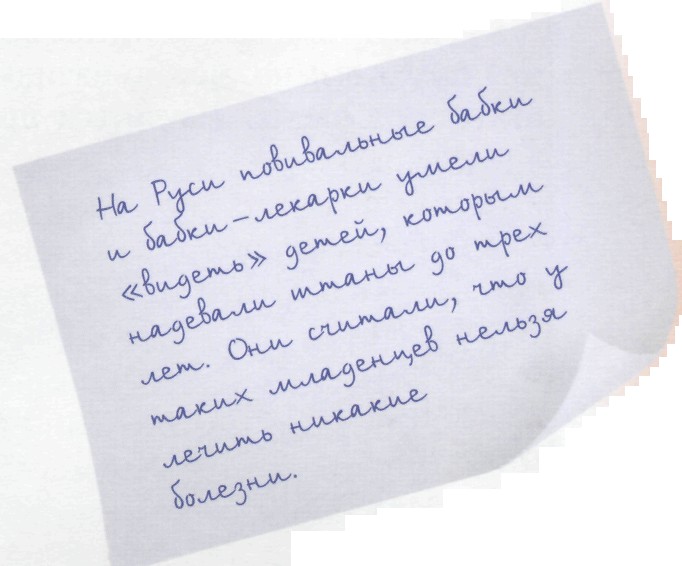 На Руси повивальные бабки
и бабки-лекарки умели
«видеть» детей, которым
надевали штаны до трех
лет. Они считали, что у
таких младенцев нельзя
лечить никакие
болезни.